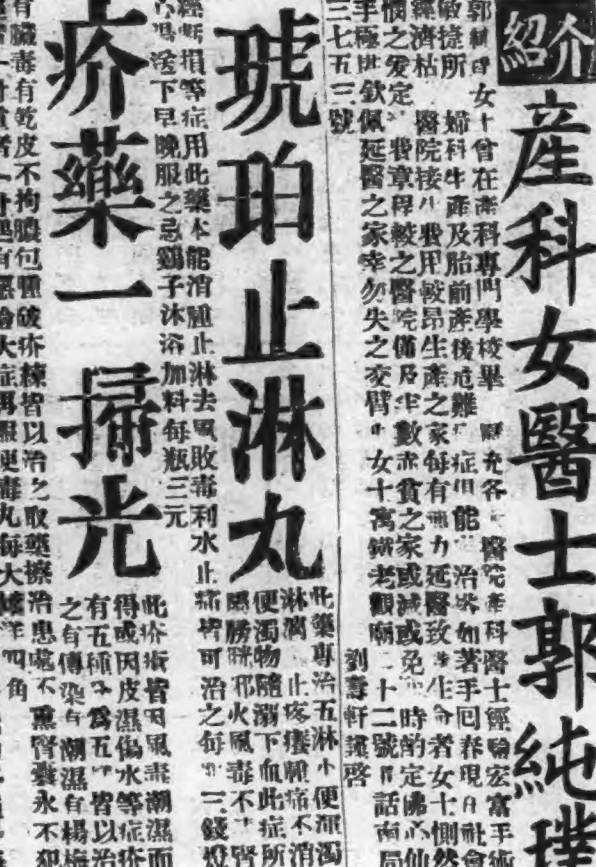 介紹
產科女醫士郭純璞
郭 女士曾在產科專門學校畢 歷充各 醫院產科醫士經驗宏富手術
敏捷所 婦科生產及胎前產後危難 症但能 治 如著手回春現 社會
經濟枯 醫院接生費用較昂生產之家每有無力延醫致 生命者女士惻然
憫之爰定 費章程較之醫院僅及半數赤貧之家或減或免 時酌定佛心仙
手極堪欽佩延醫之家幸勿失之交臂 女士寓鐵老觀廟 二十二號 話南局
三七五三號
劉壽軒謹啓
琥珀止淋丸
此藥專治五淋小便渾濁
淋漓 止疼痠腫痛不消
便濁物隨溺下血此症所
勝胱邪火風毒不 腎
經虧損等症用此藥本能消腫止淋去風敗毒利水止痛皆可治之每 三錢燈
心湯送下早晚服之忌鷄子沐浴加料每瓶三元
疥藥一掃光
此疥瘡皆因風毒潮濕而
得或因皮濕傷水等症疥
有五種 爲五 皆以治
之有傳染有潮濕有楊梅
有臟毒有乾皮不拘膿包腫破疥練皆以治之取藥擦治患處不 熏腎囊永不犯
大症再服便毒丸每大 洋四角